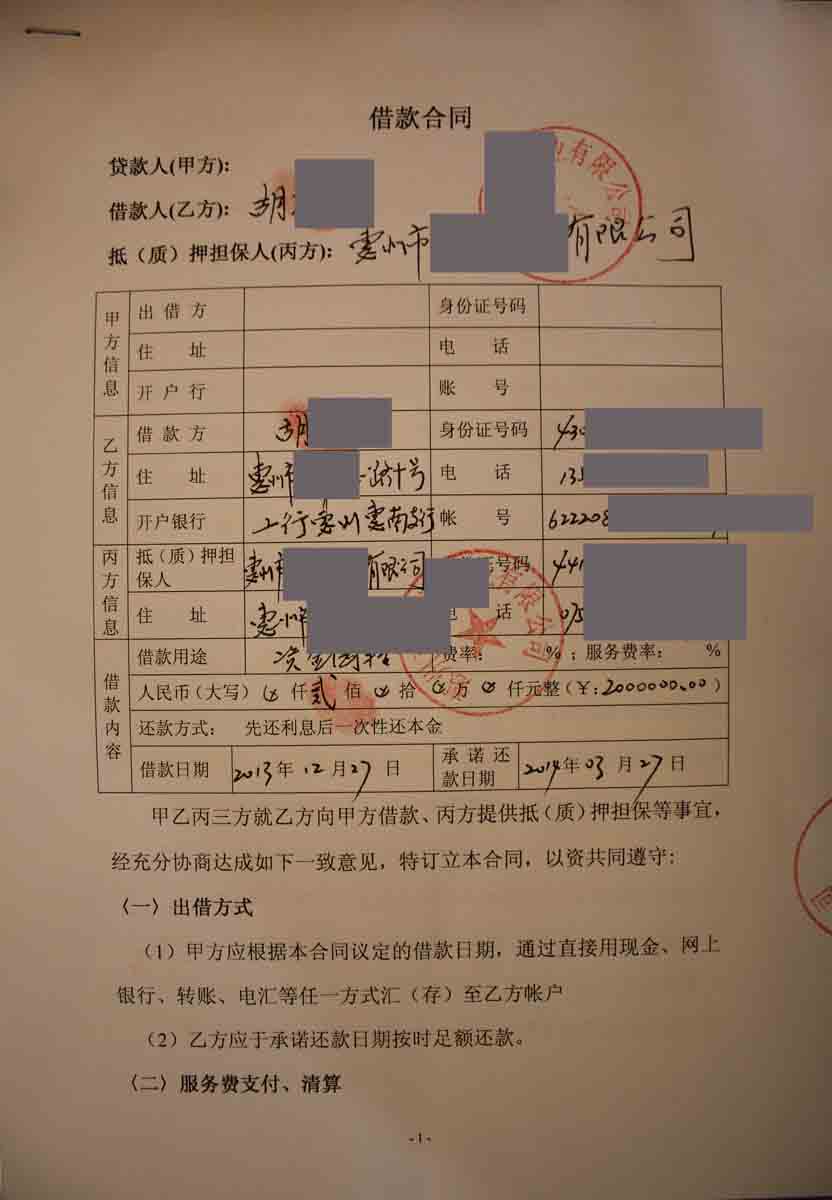 借款合同
贷款人(甲方):
借款人(乙方): 胡
抵（质）押担保人(丙方): 惠州市 有限公司
电有限公司
甲方信息
出借方 身份证号码
住 址 电 话
开户行 账 号
乙方信息
借款方 胡 身份证号码 430
住 址 惠州市 路十号 电 话 135
开户银行 工行惠州惠南支行 帐 号 622208
丙方信息
抵（质）押担保人 惠州市 有限公司 证号码 441
住 址 惠州市 电 话 075
有限公司
借款内容
借款用途 资金周转 费率： %；服务费率： %
人民币(大写) 仟贰佰 拾 万 仟元整(￥:2000000.00)
还款方式： 先还利息后一次性还本金
借款日期 2013年12月27日 承诺还款日期 2014年03月27日
甲乙丙三方就乙方向甲方借款、丙方提供抵（质）押担保等事宜，
经充分协商达成如下一致意见，特订立本合同，以资共同遵守:
〈一〉出借方式
（1）甲方应根据本合同议定的借款日期，通过直接用现金、网上
银行、转账、电汇等任一方式汇（存）至乙方帐户
（2）乙方应于承诺还款日期按时足额还款。
〈二〉服务费支付、清算
司
- 1 -